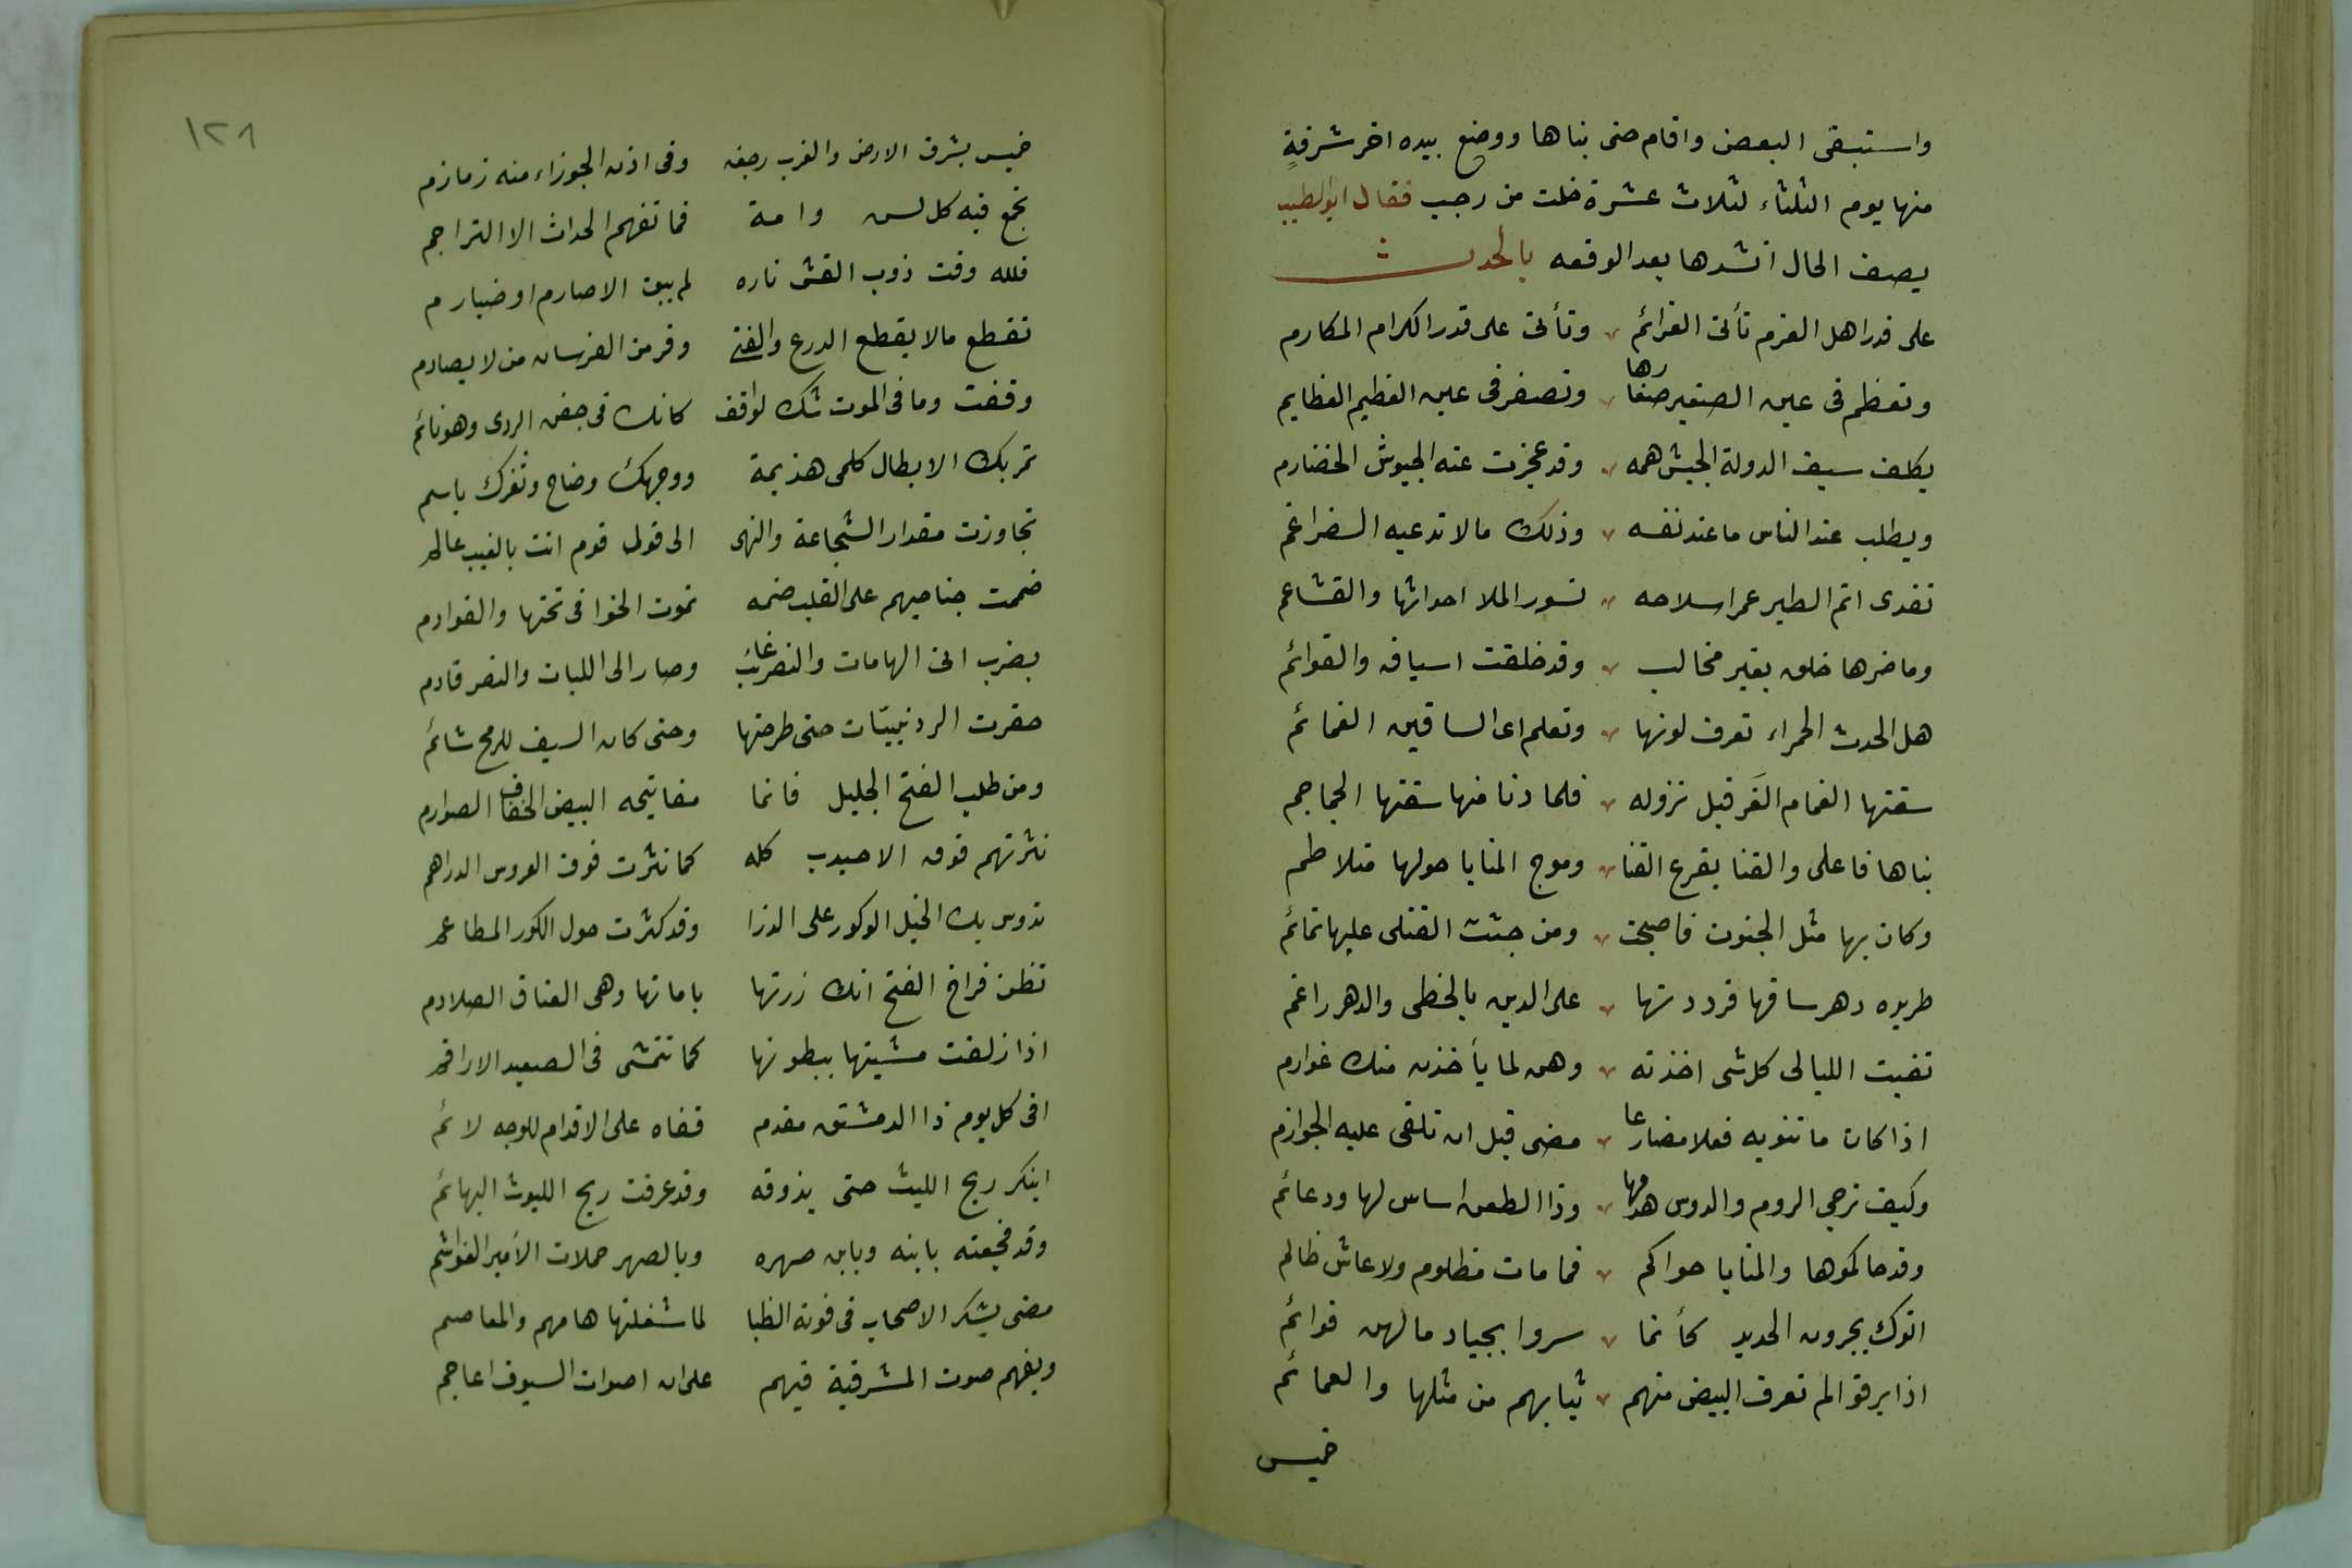 واستبقى البعض واقام حتى بناها ووضع بيده اخر شرفةٍ
منها يوم الثلثاء لثلاث عشرة خلت من رجب فقال ابوالطيب
يصف الحال انشدها بعد الوقعه بالحدث
على قدر اهل العزم تأتى العزائم وتأتى على قدر الكرام المكارم
وتعظم فى عين الصغير صغارها وتصغر فى عين العظيم العظايم
يكلف سيف الدولة الجيش همه وقد عجزت عنه الجيوش الخضارم
ويطلب عند الناس ما عند نفسه وذلك مالا تدعيه الضراغم
تفدى اتم الطير عمرا سلاحه نسور الملا احداثها والقشاعم
وما ضرها خلق بغير مخالب وقد خلقت اسيافه والقوائم
هل الحدث الحمراء تعرف لونها وتعلم اى الساقين الغمائم
سقتها الغمام الغَر قبل نزوله فلما دنا منها سقتها الجماجم
بناها فاعلى والقنا يقرع القنا وموج المنايا حولها متلاطم
وكان بها مثل الجنون فاصبحت ومن جثث القتلى عليها تمائم
طريده دهر ساقها فرددتها على الدين بالخطى والدهر راغم
تفيت الليالى كل شى اخذته وهن لما يأخذن منك غوارم
اذا كان ما تنويه فعلا مضارعا مضى قبل ان تلقى عليه الجوازم
وكيف ترجي الروم والروس هدمها وذا الطعن اساس لها ودعائم
وقد حاكموها والمنايا حواكم فما مات مظلوم ولا عاش ظالم
اتوك يجرون الحديد كأنما سروا بجياد ما لهن قوائم
اذا برقوا لم تعرف البيض منهم ثيابهم من مثلها والعمائم
خميس
١٢٨
خميس بشرق الارض والغرب رجفه وفى اذن الجوزاء منه زمازم
تجمع فيه كل لسن وامة فما تفهم الحداث الا التراجم
فلله وقت ذوب الغش ناره لم يبق الا صارم او ضبارم
تقطع مالا يقطع الدرع والفتى وفر من الفرسان من لا يصادم
وقفت وما فى الموت شك لواقف كانك فى جفن الردى وهو نائم
تمر بك الابطال كلمى هذيمة ووجهك وضاح وثغرك باسم
تجاوزت مقدار الشجاعة والنهى الى قول قوم انت بالغيب عالم
ضممت جناحيهم على القلب ضمه تموت الخوافى تحتها والقوادم
بضرب اتى الهامات والنصر غائب وصار الى اللبات والنصر قادم
حقرت الردنييّات حتى طرحتها وحتى كان السيف للرمح شائم
ومن طلب الفتح الجليل فانما مفاتيحه البيض الخفاف الصوارم
نثرتهم فوق الاحيدب كله كما نثرت فوق العروس الدراهم
تدوس بك الخيل الوكور على الذرا وقد كثرت حول الكور المطاعم
تظن فراخ الفتح انك زرتها باماتها وهى العتاق الصلادم
اذا زلفت مشيتها ببطونها كما تتمشى فى الصعيد الاراقم
افى كل يوم ذا الدمشتق مقدم قفاه على الاقدام للوجه لائم
اينكر ريح الليث حتى يذوقه وقد عرفت ريح الليوث البهائم
وقد فجعته بابنه وبابن صهره وبالصهر حملات الأمير الغواشم
مضى يشكر الاصحاب فى فوته الظبا لما شغلتها هامهم والمعاصم
ويفهم صوت المشرفية فيهم على ان اصوات السيوف اعاجم